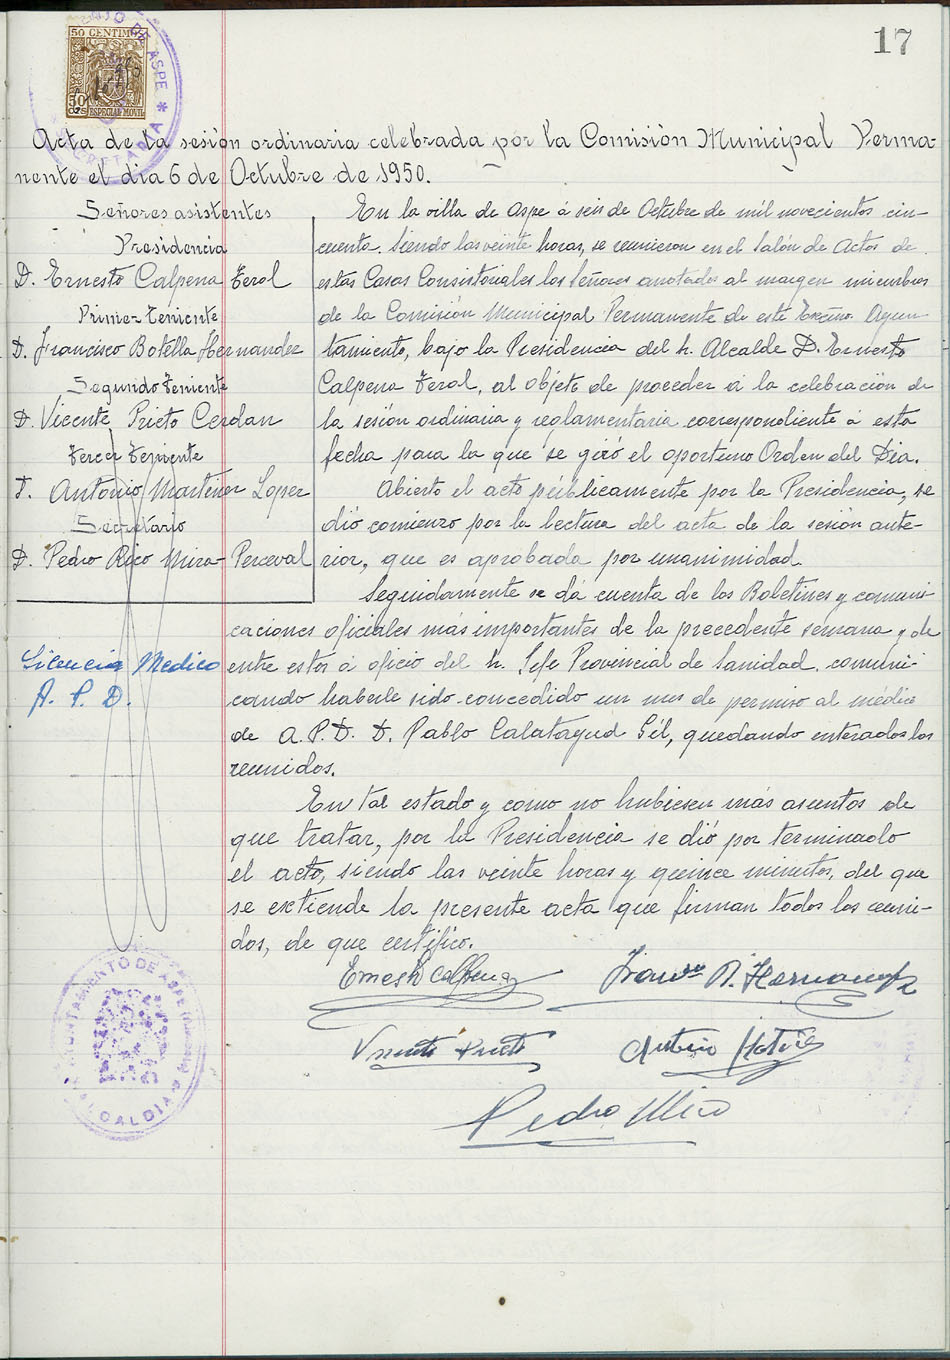 17
50 CENTIMOS
50 CTS ESPECIAL MOVIL
DE ASPE * SECRETARIA
Acta de la sesión ordinaria celebrada por la Comisión Municipal Perma-
nente el dia 6 de Octubre de 1950.
Señores asistentes
Presidencia
D. Ernesto Calpena Ferol
Primer Teniente
D. Francisco Botella Hernandez
Segundo Teniente
D. Vicente Prieto Cerdan
Tercer Teniente
D. Antonio Martinez Lopez
Secretario
D. Pedro Rico Mira-Perceval
En la villa de Aspe á seis de Octubre de mil novecientos cin-
cuenta. Siendo las veinte horas, se reunieron en el Salón de Actos de
estas Casas Consistoriales los Señores anotados al margen miembros
de la Comisión Municipal Permanente de este Excmo. Ayun-
tamiento, bajo la Presidencia del Sr. Alcalde D. Ernesto
Calpena Ferol, al objeto de proceder á la celebración de
la sesión ordinaria y reglamentaria correspondiente á esta
fecha para la que se giró el oportuno Orden del Dia.
Abierto el acto públicamente por la Presidencia, se
dió comienzo por la lectura del acta de la sesión ante-
rior, que es aprobada por unanimidad.
Seguidamente se dá cuenta de los Boletines y comuni-
caciones oficiales mas importantes de la precedente semana y de
Licencia Medico
A. P. D.
entre estos á oficio del Sr. Jefe Provincial de Sanidad, comuni-
cando haberle sido concedido un mes de permiso al médico
de A.P.D. D. Pablo Calatayud Gil, quedando enterados los
reunidos.
En tal estado y como no hubiesen más asuntos de
que tratar, por la Presidencia se dió por terminado
el acto, siendo las veinte horas y quince minutos, del que
se extiende la presente acta que firman todos los reuni-
dos, de que certifico.
Ernesto Calpena
Franco B. Hernandez
Vicente Prieto
Antonio Martinez
Pedro Rico
AYUNTAMIENTO DE ASPE (Alicante)
ALCALDIA